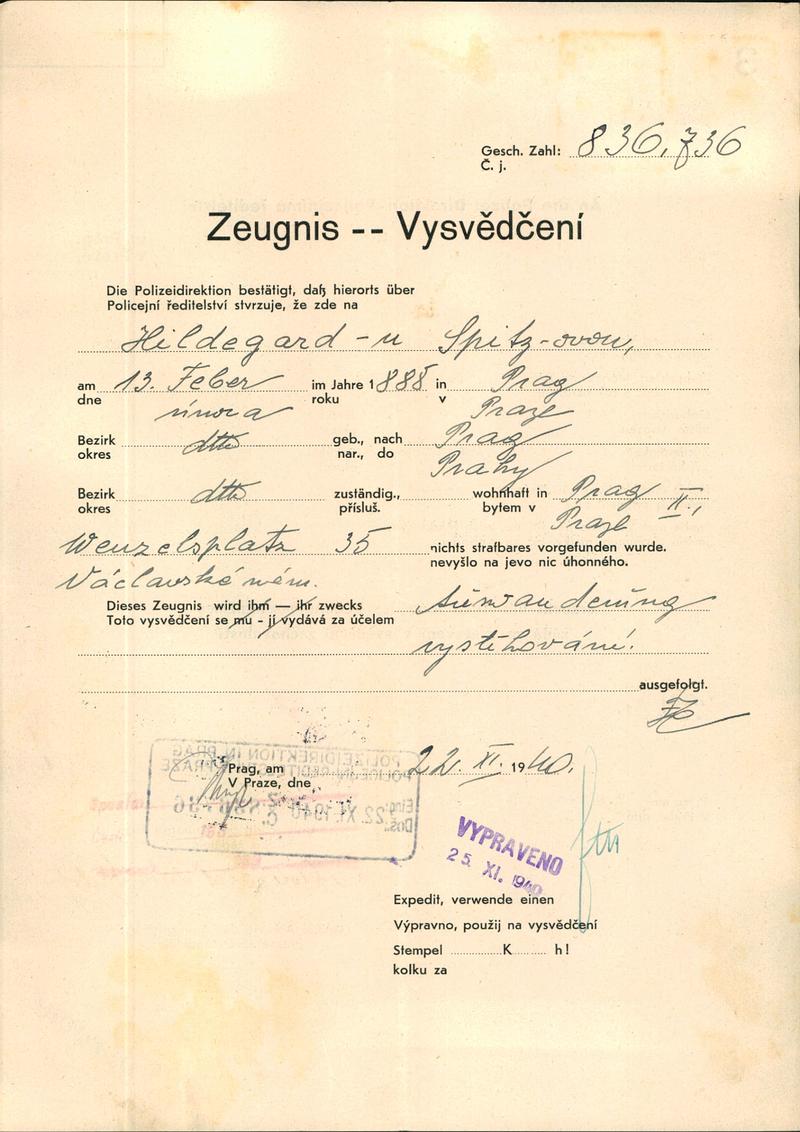 Gesch. Zahl: 836,736
Č. j.
Zeugnis -- Vysvědčení
Die Polizeidirektion bestätigt, daß hierorts über
Policejní ředitelství stvrzuje, že zde na
Hildegard-u Spitz-ovou,
am 13. Feber im Jahre 1888 in Prag
dne února roku v Praze
Bezirk dtto geb., nach Prag
okres nar., do Prahy
Bezirk dtto zuständig., wohnhaft in Prag II.,
okres přísluš. bytem v Praze
Wenzelsplatz 35 nichts strafbares vorgefunden wurde.
Václavské nám. nevyšlo na jevo nic úhonného.
Dieses Zeugnis wird ihm — ihr zwecks Auswanderung
Toto vysvědčení se mu - jí vydává za účelem
vystěhování.
ausgefolgt.
POLIZEIDIREKTION IN PRAG
Prag, am 22. XI. 1940.
V Praze, dne
Eing.: 22. XI. 1940
Došlo:
VYPRAVENO
25. XI. 1940
Expedit, verwende einen
Výpravno, použij na vysvědčení
Stempel K h!
kolku za